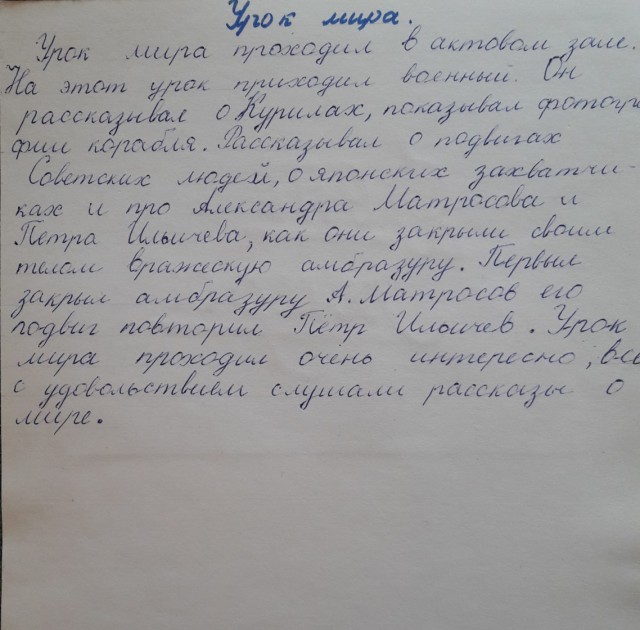 Урок мира.
Урок мира проходил в актовом зале.
На этот урок приходил военный. Он
рассказывал о Курилах, показывал фотогра
фии корабля. Рассказывал о подвигах
Советских людей, о японских захватчи-
ках и про Александра Матросова и
Петра Ильичева, как они закрыли своим
телом вражескую амбразуру. Первым
закрыл амбразуру А. Матросов его
подвиг повторил Пётр Ильичев. Урок
мира проходил очень интересно, все
с удовольствием слушали рассказы о
мире.